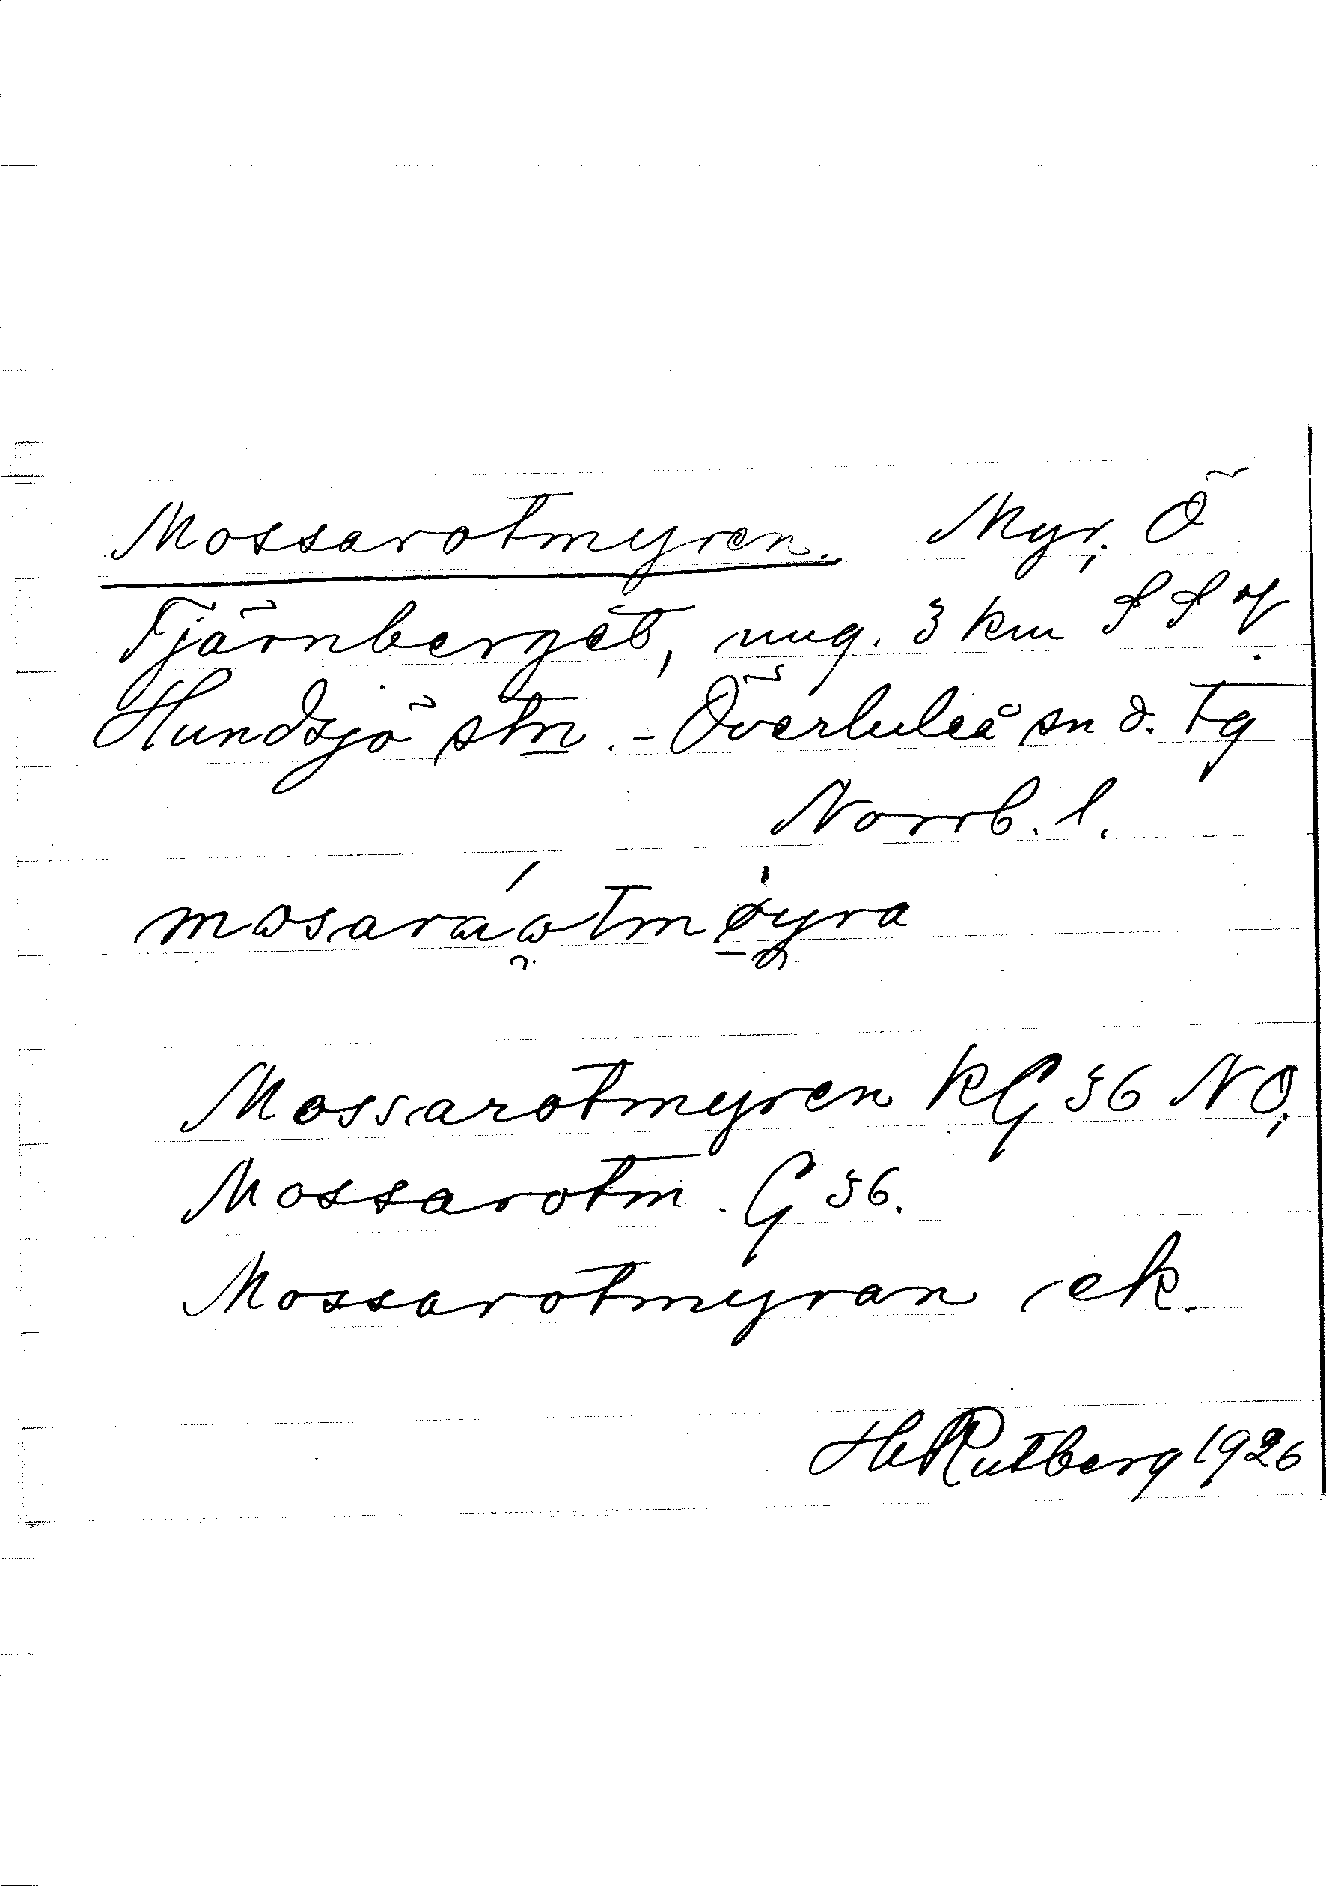 Mossarotmyren. Myr, Ö
Tjärnberget, ung. 3 km S S of
Hundsjö stn. - Överluleå sn ö. Tg
Norrb. l.
Mossarotmyren KG 36 NO,
Mossarotm. G 36.
Mossarotmyran ek.
H Rutberg 1926